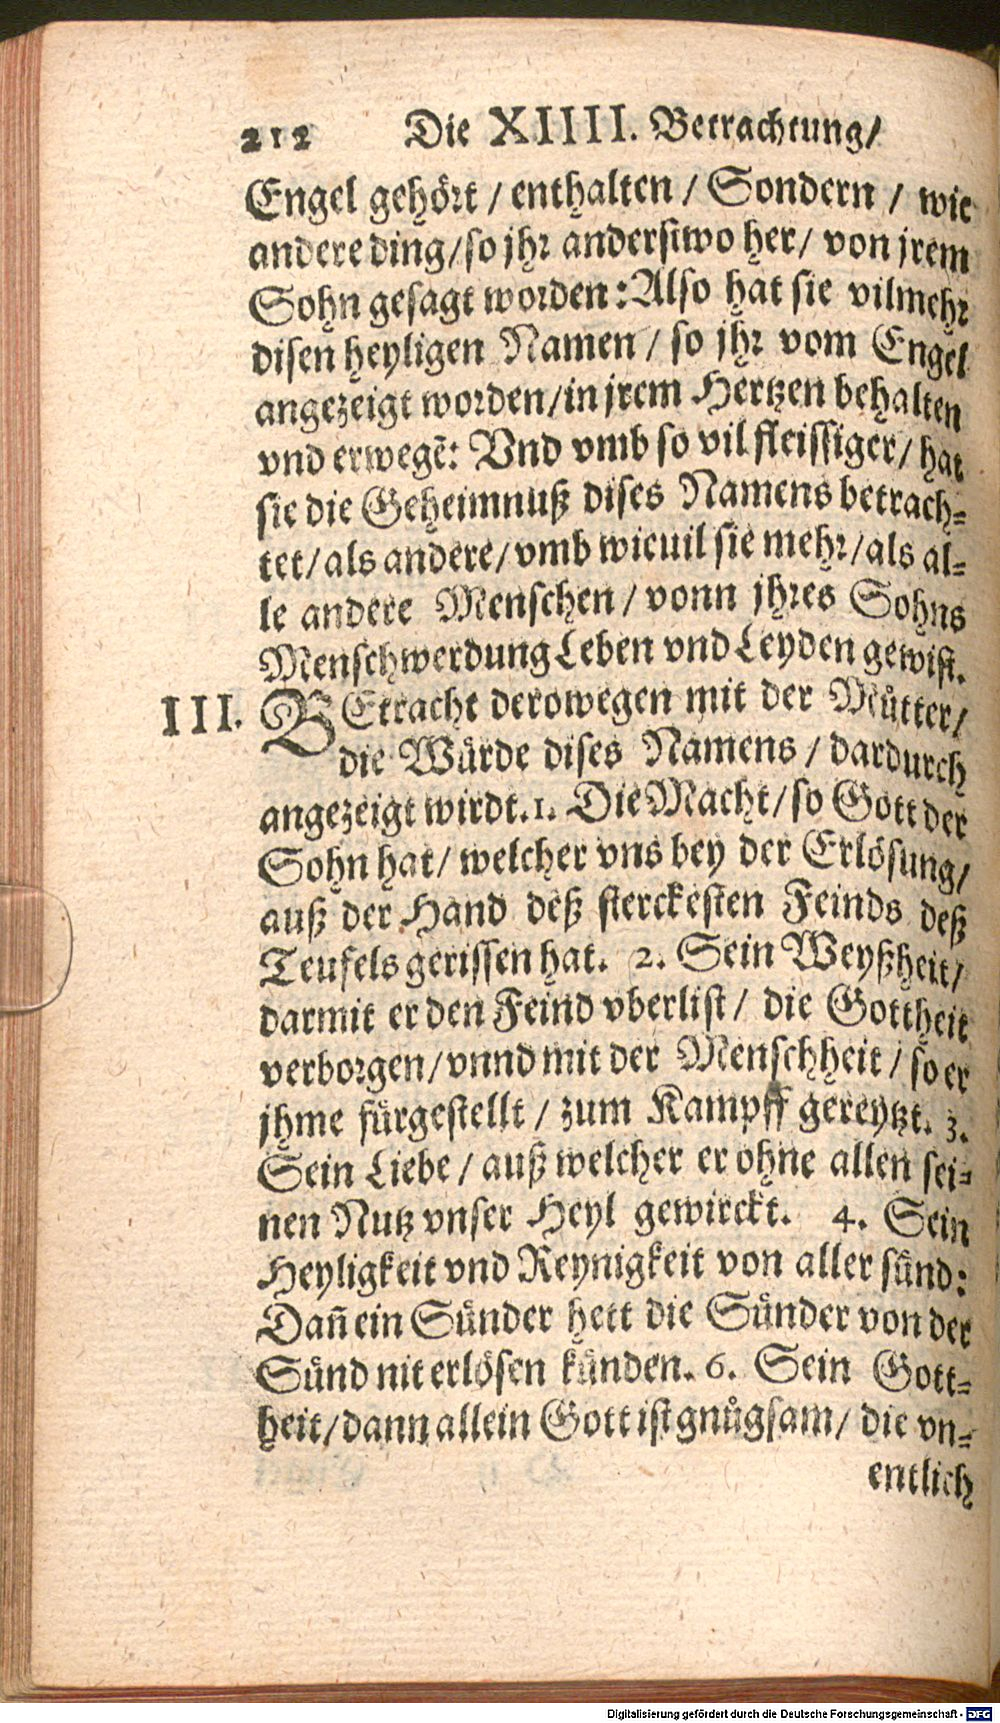 212 Die XIIII. Betrachtung/
Engel gehört / enthalten / Sondern / wie
andere ding/so jhr anderstwo her/ von jrem
Sohn gesagt worden: Also hat sie vilmehr
disen heyligen Namen / so jhr vom Engel
angezeigt worden/in jrem Hertzen behalten
vnd erwegẽ: Vnd vmb so vil fleissiger/ hat
sie die Geheimnuß dises Namens betrach-
tet/als andere/vmb wieuil sie mehr/als al-
le andere Menschen/ vonn jhres Sohns
Menschwerdung Leben vnd Leyden gewist.
III. BEtracht derowegen mit der Mütter/
die Würde dises Namens / dardurch
angezeigt wirdt.1. Die Macht/so Gott der
Sohn hat/ welcher vns bey der Erlösung/
auß der Hand deß sterckesten Feinds deß
Teufels gerissen hat. 2. Sein Weyßheit/
darmit er den Feind vberlist/ die Gottheit
verborgen/vnnd mit der Menschheit/so er
jhme fürgestellt / zum Kampff gereytzt. 3.
Sein Liebe/ auß welcher er ohne allen sei-
nen Nutz vnser Heyl gewirckt. 4. Sein
Heyligkeit vnd Reynigkeit von aller sünd:
Dañ ein Sünder hett die Sünder von der
Sünd nit erlösen künden. 6. Sein Gott-
heit/dann allein Gott ist gnůgsam/ die vn-
entlich
Digitalisierung gefördert durch die Deutsche Forschungsgemeinschaft - DFG